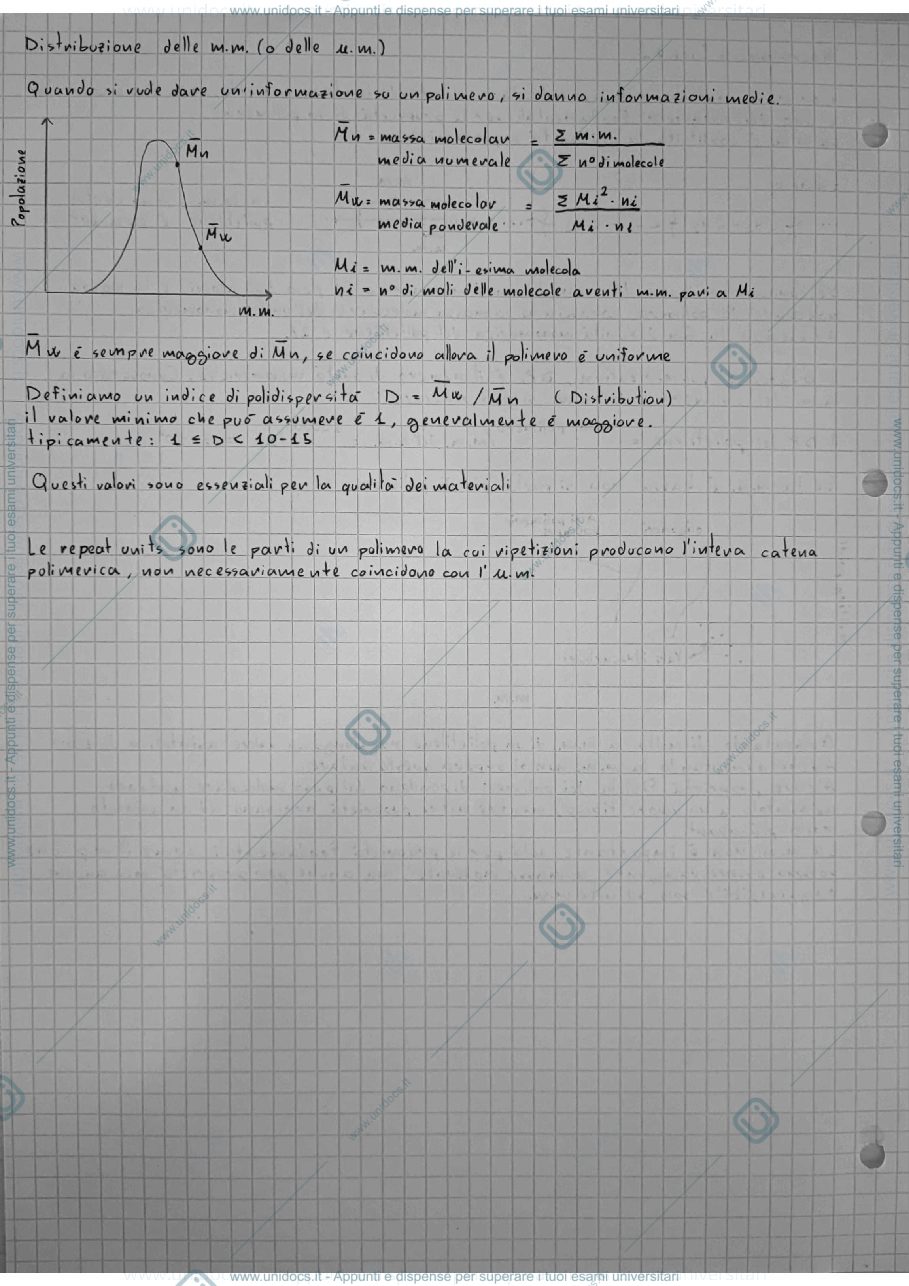 www.unidocs.it - Appunti e dispense per superare i tuoi esami universitari
Distribuzione delle m.m. (o delle u.m.)
Quando si vude dare un'informazione su un polimero, si danno informazioni medie.
Popolazione
M̄n
M̄w
m.m.
M̄n = massa molecolar media numerale = Σ m.m. / Σ n° di molecole
M̄w = massa molecolar media ponderale = Σ Mi² · ni / Mi · ni
Mi = m.m. dell'i-esima molecola
ni = n° di moli delle molecole aventi m.m. pari a Mi
M̄w é sempre maggiore di M̄n, se coincidono allora il polimero é uniforme
Definiamo un indice di polidispersitá D = M̄w / M̄n (Distribution)
il valore minimo che puó assumere é 1, generalmente é maggiore.
tipicamente: 1 ≤ D < 10-15
Questi valori sono essenziali per la qualitá dei materiali
Le repeat units sono le parti di un polimero la cui ripetizioni producono l'intera catena
polimerica, non necessariamente coincidono con l'u.m.
www.unidocs.it - Appunti e dispense per superare i tuoi esami universitari
www.unidocs.it - Appunti e dispense per superare i tuoi esami universitari
www.unidocs.it - Appunti e dispense per superare i tuoi esami universitari